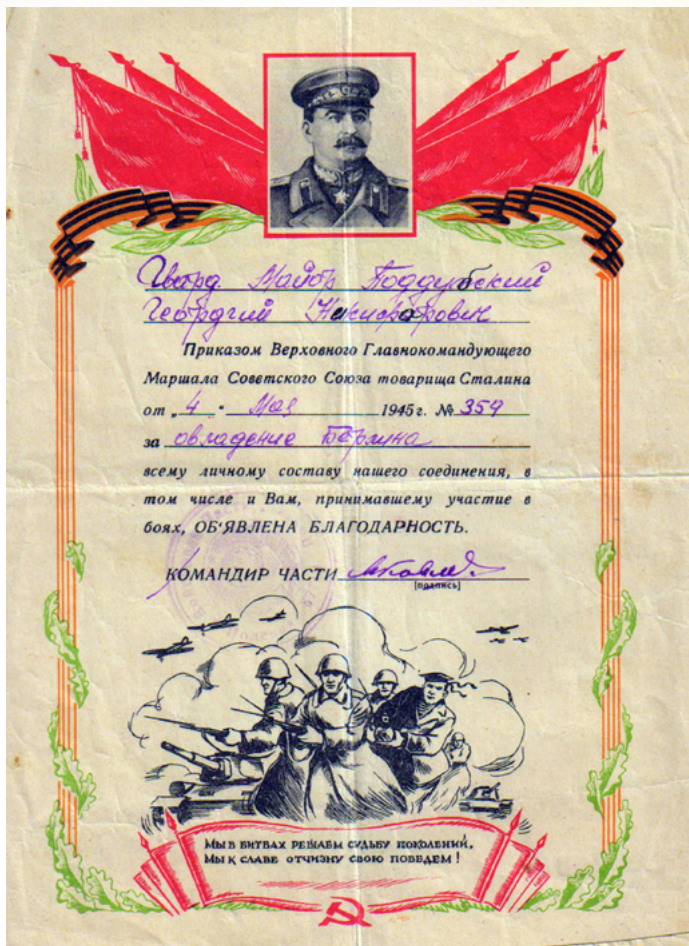 Гвард. Майор Поддубский
Георгий Никифорович
Приказом Верховного Главнокомандующего
Маршала Советского Союза товарища Сталина
от „4" Мая 1945г. № 359
за овладение Берлина
всему личному составу нашего соединения, в
том числе и Вам, принимавшему участие в
боях, ОБ'ЯВЛЕНА БЛАГОДАРНОСТЬ.
КОМАНДИР ЧАСТИ
[подпись]
МЫ В БИТВАХ РЕШАЕМ СУДЬБУ ПОКОЛЕНИЙ,
МЫ К СЛАВЕ ОТЧИЗНУ СВОЮ ПОВЕДЕМ!